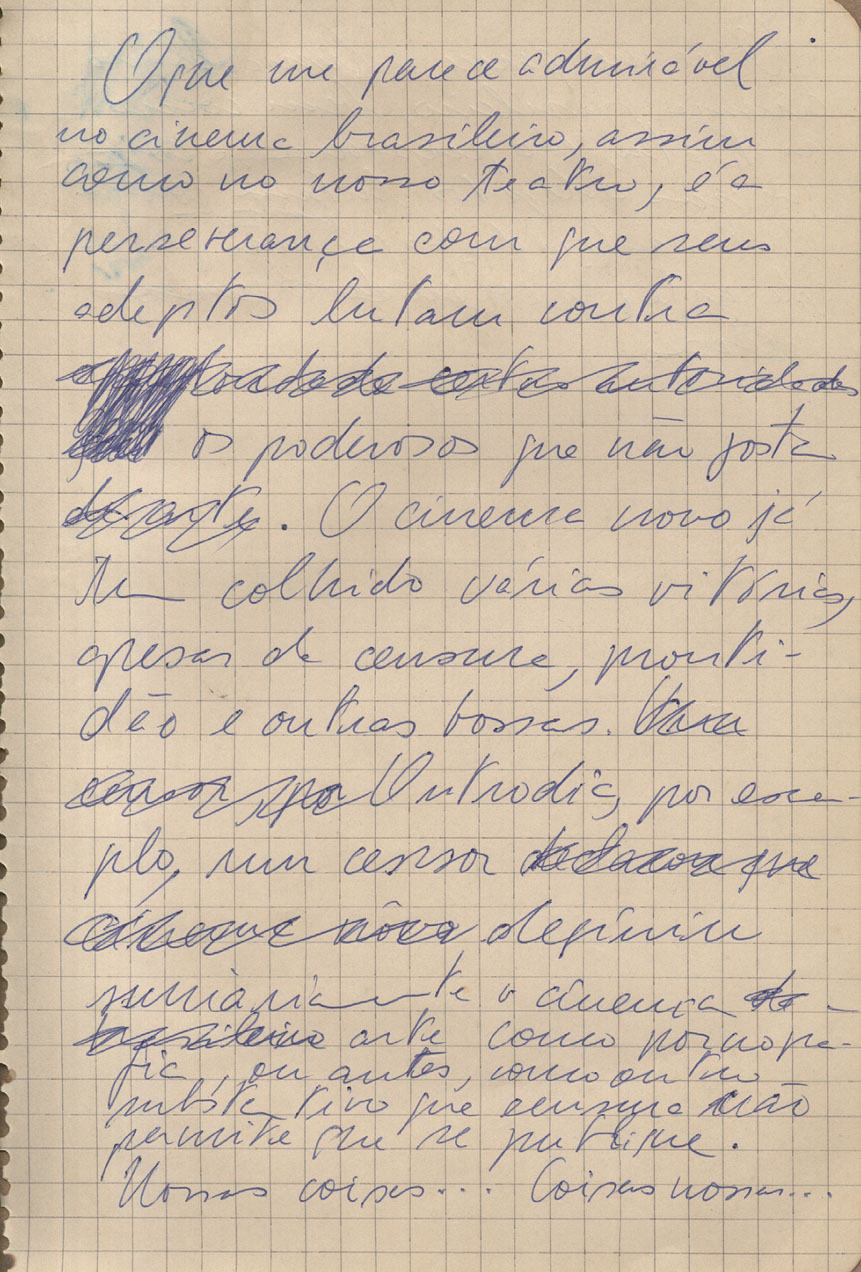 O que me parece admirável
no cinema brasileiro, assim
como no nosso teatro, é a
perseverança com que seus
adeptos lutam contra
de certas autoridades
os poderosos que não gosta
de arte. O cinema novo já
tem colhido várias vitórias,
apesar da censura, pronti-
dão e outras bossas.
censor, por Outro dia, por exem-
plo, um censor que
cinema novo definiu
sumariamente o cinema de
brasileiro arte como pornogra-
fia, ou antes, como outro
substantivo que censura não
permite que se publique.
Nossas coisas... Coisas nossas...